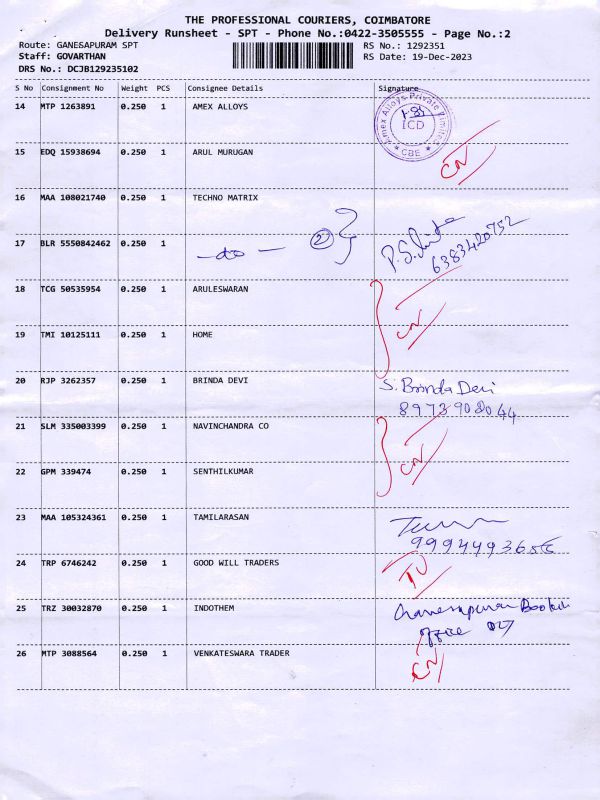 THE PROFESSIONAL COURIERS, COIMBATORE
Delivery Runsheet - SPT - Phone No.:0422-3505555 - Page No.:2
Route: GANESAPURAM SPT RS No.: 1292351
Staff: GOVARTHAN RS Date: 19-Dec-2023
DRS No.: DCJB129235102
S No Consignment No Weight PCS Consignee Details Signature
14 MTP 1263891 0.250 1 AMEX ALLOYS
Amex Alloys Private Limited
ICD
CBE
15 EDQ 15938694 0.250 1 ARUL MURUGAN CN
16 MAA 108021740 0.250 1 TECHNO MATRIX
17 BLR 5550842462 0.250 1 —do— 2 } 6383420752
18 TCG 50535954 0.250 1 ARULESWARAN
CN
19 TMI 10125111 0.250 1 HOME
20 RJP 3262357 0.250 1 BRINDA DEVI S. Brinda Devi
8973908044
21 SLM 335003399 0.250 1 NAVINCHANDRA CO
CN
22 GPM 339474 0.250 1 SENTHILKUMAR
23 MAA 105324361 0.250 1 TAMILARASAN
24 TRP 6746242 0.250 1 GOOD WILL TRADERS
25 TRZ 30032870 0.250 1 INDOTHEM
office
26 MTP 3088564 0.250 1 VENKATESWARA TRADER CN